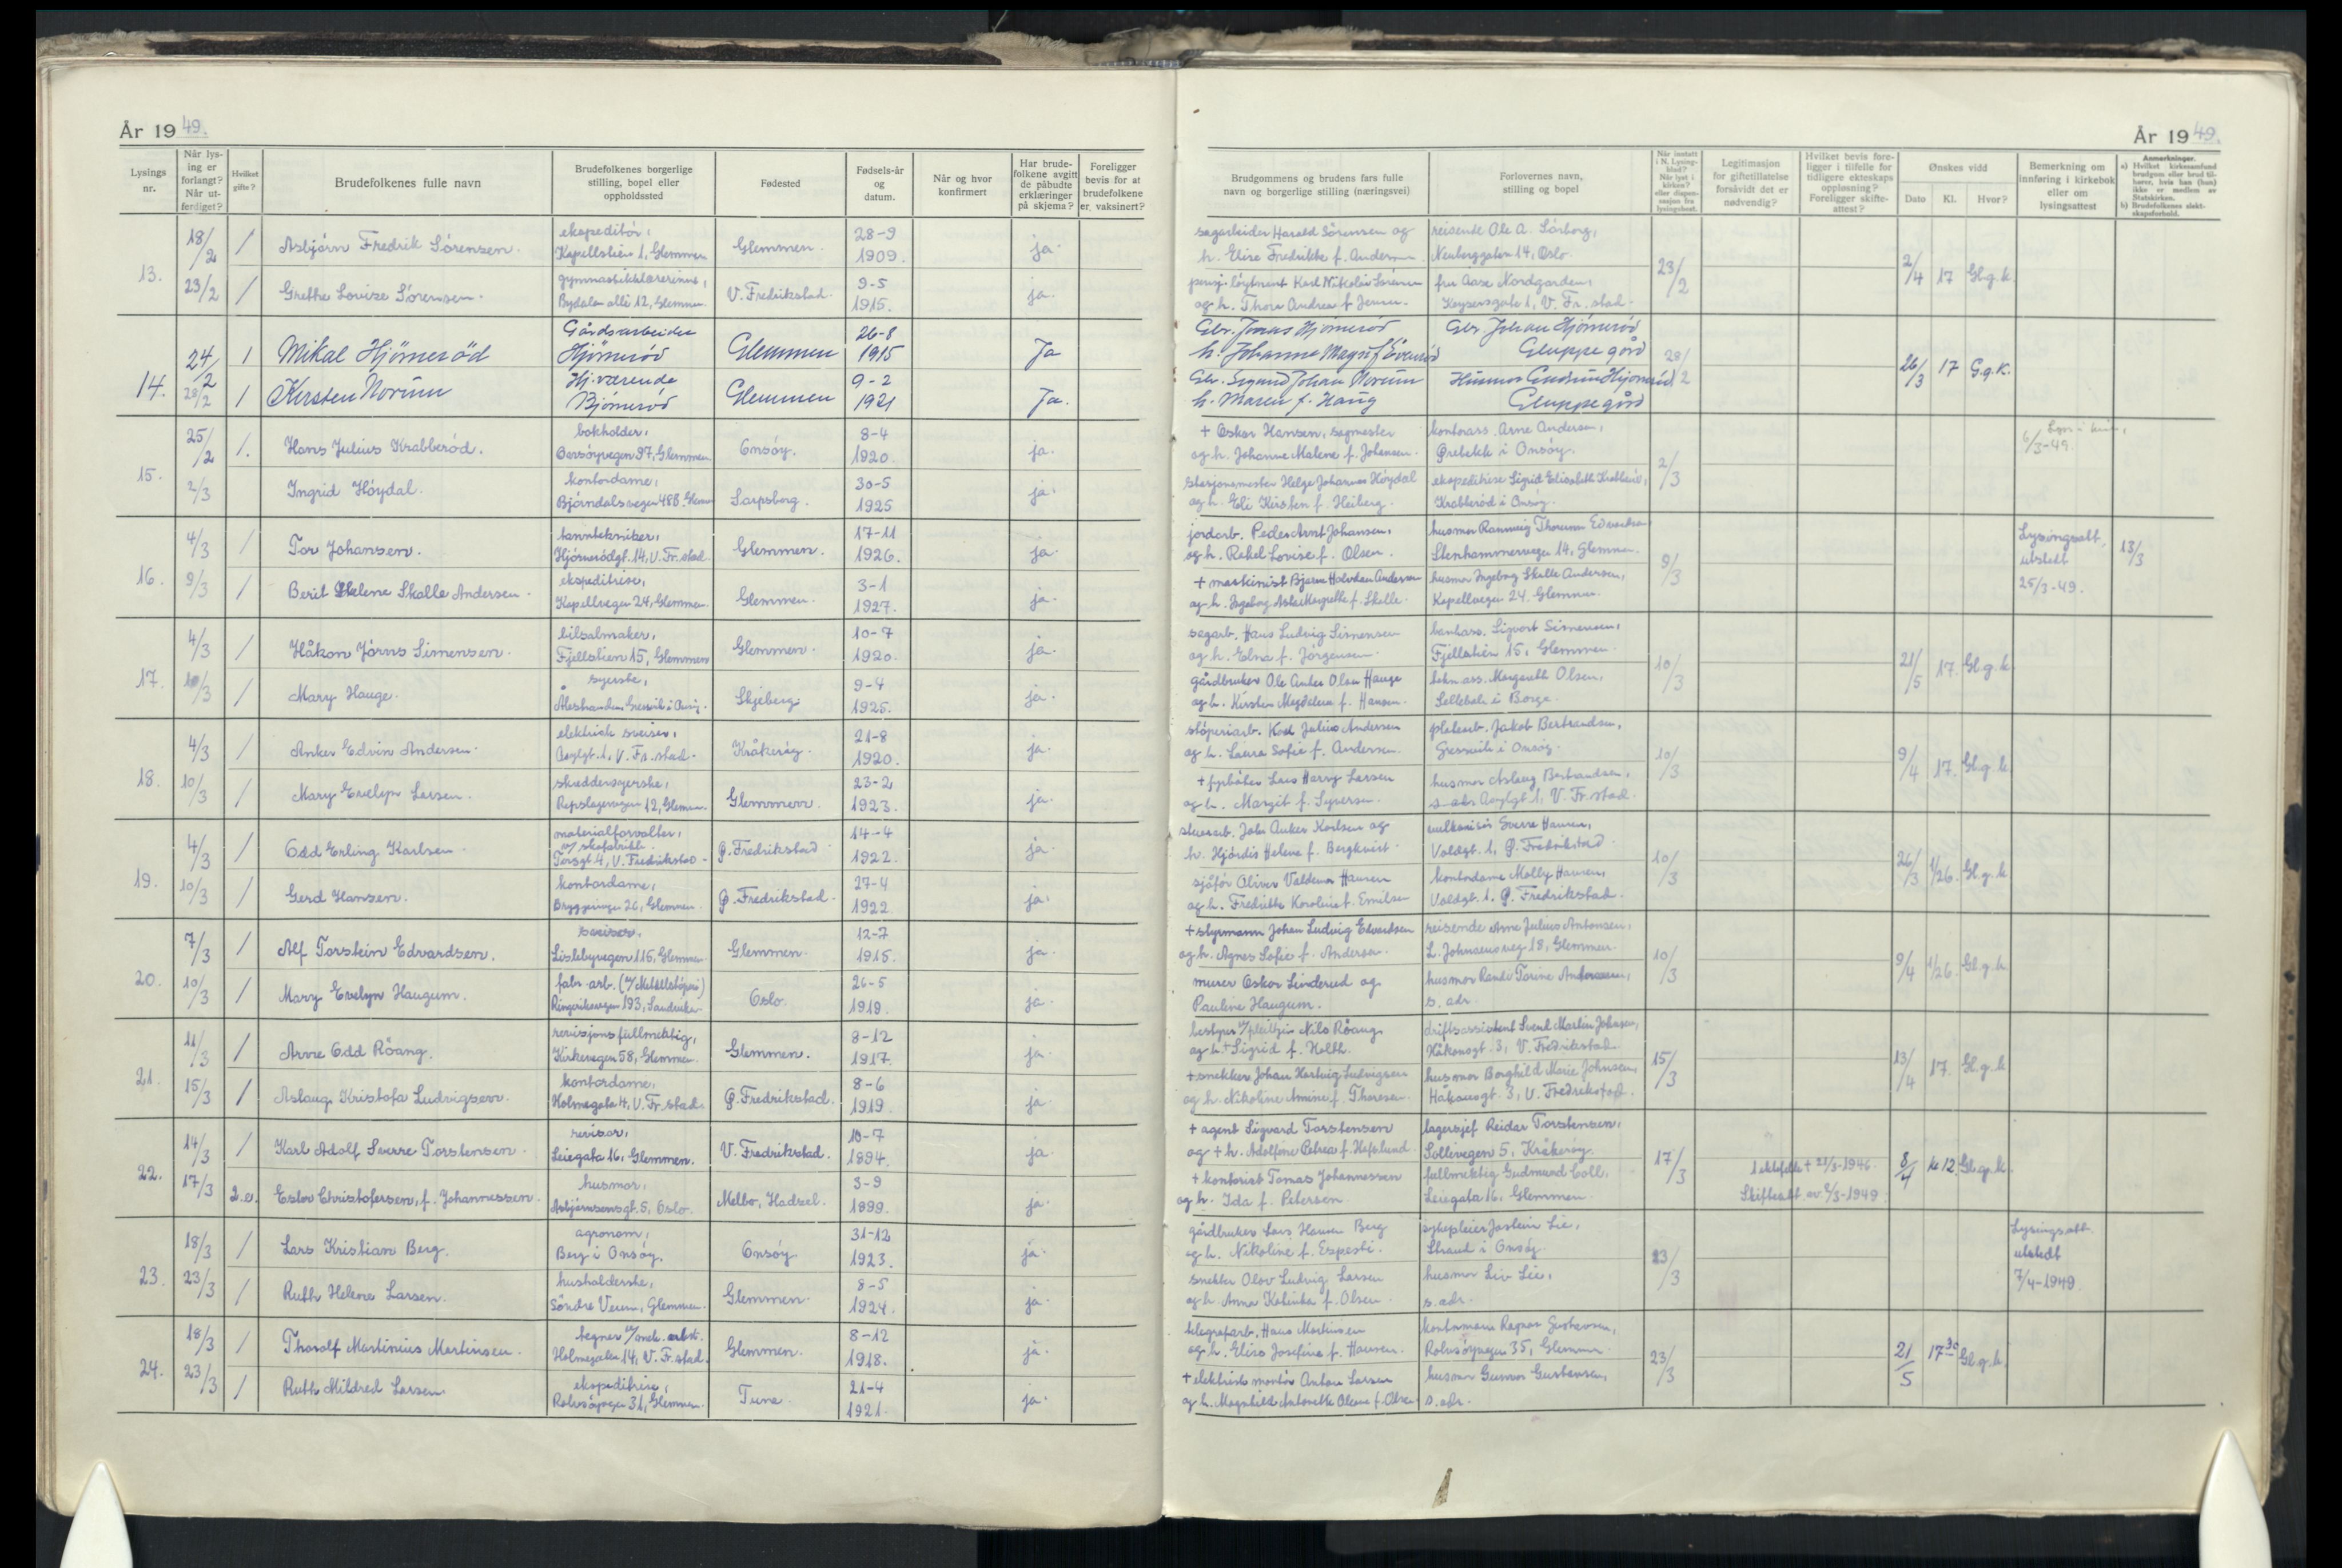 År 19 49.
Lysings nr.
Når lysing er forlangt? Når utferdiget?
Hvilket gifte?
Brudefolkenes fulle navn
Brudefolkenes borgerlige stilling, bopel eller oppholdssted
Fødested
Fødsels-år og datum.
Når og hvor konfirmert
Har brudefolkene avgitt de påbudte erklæringer på skjema?
Foreligger bevis for at brudefolkene er vaksinert?
13. 18/2 / Asbjørn Fredrik Sörensen. ekspeditör, Kapellstien 1, Glemmen Glemmen. 28-9 1909. ja.
23/2 / Grethe Lovise Sörensen. gymnastikklærerinne, Bydalen allé 12, Glemmen. V. Fredrikstad. 9-5 1915. ja.
14. 24/2 1 Mikal Hjörneröd Gårdsarbeider Hjörneröd Glemmen 26-8 1915 Ja
28/2 1 Kirsten Norum Hj.værende Bjørneröd Glemmen 9-2 1921 Ja.
15. 25/2 /. Hans Julius Krabberöd. bokholder, 97, Glemmen. Onsöy. 8-4 1920. ja.
2/3 Ingrid Höydal. kontordame, Bjørndalsvegen 48B. Sarpsborg. 30-5 1925 ja.
16. 4/3 / Tor Johansen. tanntekniker, Hjörnerödgt. 14, V. Fr.stad. Glemmen. 17-11 1926. ja.
9/3 / Berit Helene Skolle Andersen. ekspeditrise, Kapellvegen 24, Glemmen. Glemmen. 3-1 1927. ja.
17. 4/3 / Håkon Jörns Simensen. bilsalmaker, Fjellstien 15, Glemmen Glemmen. 10-7 1920. ja.
10/3 / Mary Hauge. syerske, Skjeberg. 9-4 1925. ja.
18. 4/3 / Anker Edvin Andersen. elektrisk sveiser, V. Fr. stad. Kråkeröy. 21-8 1920. ja.
10/3 / Mary Evelyn Larsen. skreddersyerske, Repslagervegen 12, Glemmen. Glemmen. 23-2 1923. ja.
19. 4/3 / Odd Erling Karlsen. materialforvalter, v/ skofabrikk. Torsgt. 4, V. Fredrikstad G. Fredrikstad. 14-4 1922. ja.
10/3 / Gerd Hansen. kontordame, 26, Glemmen. G. Fredrikstad. 27-4 1922. ja.
20. 7/3 / Alf Torstein Edvardsen. sveiser, Lislebyvegen 116, Glemmen. Glemmen. 12-7 1915. ja.
10/3 / Mary Evelyn Haugum. fabr. arb. Ringeriksvegen 193, Sandvika Oslo. 26-5 1919. ja.
21. 11/3 / Arne Odd Röang. revisjonsfullmektig, Kirkevegen 58, Glemmen. Glemmen. 8-12 1917. ja.
15/3 / Aslaug Kristofa Ludvigsen. kontordame, Holmegata 4, V. Fr.stad. G. Fredrikstad. 8-6 1919. ja.
22. 14/3 / Karl Adolf Sverre Torstensen. revisor, Leiegata 16, Glemmen. V. Fredrikstad. 10-7 1894. ja.
17/3 2.e. Ester Christofersen, f. Johannessen. husmor, Asbjørnsensgt. 5, Oslo. Melbo, Hadsel. 3-9 1899. ja.
23. 18/3 / Lars Kristian Berg. agronom, Berg i Onsöy. Onsöy 31-12 1923. ja.
23/3 / Ruth Helene Larsen. husholderske, Söndre Veum, Glemmen. Glemmen. 8-5 1924. ja.
24. 18/3 / Thoralf Martinius Martinsen. tegner Holmegaten 14, V. Fr.stad. Glemmen. 8-12 1918. ja.
23/3 / Ruth Mildred Larsen. ekspeditrise, Rolvsöyvegen 31, Glemmen. Tune. 21-4 1921. ja.
År 19 49.
Brudgommens og brudens fars fulle navn og borgerlige stilling (næringsvei)
Forlovernes navn, stilling og bopel
Når innsatt i N. Lysingblad? Når lyst i kirken? eller dispensasjon fra lysingsbest.
Legitimasjon for giftetillatelse forsåvidt det er nødvendig?
Hvilket bevis foreligger i tilfelle for tidligere ekteskaps oppløsning? Foreligger skifteattest?
Ønskes vidd
Dato Kl. Hvor?
Bemerkning om innføring i kirkebok eller om lysingsattest
Anmerkninger.
a) Hvilket kirkesamfund brudgom eller brud tilhører, hvis han (hun) ikke er medlem av Statskirken.
b) Brudefolkenes slektskapsforhold.
sagarbeider Harald Sörensen og h. Elise Fredrikke f. Andersen reisende Ole A. Sörborg, Neuberggaten 14, Oslo 23/2 2/4 17 Gl.g.k.
pensj. löytnant Karl Nikolai Sörensen og h. Thora Andrea f. Jensen. fru Aase Nordgarden, Keysersgate 1, V. Fr.stad.
Gbr. Jonas Hjörneröd Gbr. Johan Hjörneröd Gluppe gård 28/2 26/3 17 G.g.K.
Gbr. Sigurd Johan Norum h. Maren f. Haug Gluppe gård
+ Oskar Hansen, sagmester og h. Johanne Malene f. Johansen. kontorass. Arne Andersen, i Onsöy. 2/3 6/3-49.
stasjonsmester Helge Johannes Höydal og h. Eli Kirsten f. Heiberg. ekspeditrise Sigrid Elisabeth Krabberöd, Krabberöd i Onsöy.
jordarb. Peder Arnt Johansen, og h. Rakel Lovise f. Olsen. husmor Rannveig Thorunn Edvardsen Stenhammervegen 14, Glemmen. 9/3 Lysingsatt. utstedt 25/3-49. 13/3
+ maskinist Bjarne Halvdan Andersen og h. Ingeborg f. Skolle. husmor Ingeborg Skolle Andersen, Kapellvegen 24, Glemmen.
sagarb. Hans Ludvig Simensen og h. Elna f. Jörgensen. Sigvart Simensen, Fjellstien 15, Glemmen. 10/3 21/5 17. Gl.g.k.
gårdbruker Ole Anker Olsen Hauge og h. Kirsten Magdalena f. Hansen. Margareth Olsen, i Borge.
stöperiarb. Karl Julius Andersen og h. Laura Sofie f. Andersen. platearb. Jakob Bertrandsen, Gressvik i Onsöy. 10/3 9/4 17. Gl.g.k.
+ fyrböter Lars Harry Larsen og h. Margit f. Syversen. husmor Aslaug Bertrandsen, V. Fr.stad.
John Anker Karlsen og h. Hjördis Helene f. Bergkvist. Sverre Hansen, Voldgt. 1, G. Fredrikstad. 10/3 26/3 1/2 6. Gl.g.k.
sjåför Oliver Valdemar Hansen og h. Fredrikke Karoline f. Emilsen kontordame Molly Hansen, Voldgt. 1. G. Fredrikstad.
+ styrmann Johan Ludvig Edvardsen og h. Agnes Sofie f. Andersen. reisende Arne Julius Antonsen, L. Johnsens veg 18, Glemmen. 10/3 9/4 1/2 6. Gl.g.k.
murer Oskar Linderud og Pauline Haugum. husmor Randi Torine s. adr.
Nils Röang og h. + Sigrid f. Holth. driftsassistent Svend Martin Johnsen, Håkonsgt. 3, V. Fredrikstad. 15/3 13/4 17. Gl.g.k
+ snekker Johan Hartvig Ludvigsen og h. Nikoline Amine f. Thoresen. husmor Borghild Marie Johnsen, Håkonsgt. 3, V. Fredrikstad.
+ agent Sigvard Torstensen og + h. Adolfine Petrea f. Hafslund lagersjef Reidar Torstensen, Sollivegen 5, Kråkeröy. 17/3 8/4 kl 12. Gl.g.k.
+ kontorist Tomas Johannessen og h. Ida f. Petersen fullmektig Gudmund Coll, Leiegata 16, Glemmen. 1 ektefelle + 21/3-1946. Skifteatt. av 2/3-1949
gårdbruker Lars Hansen Berg og h. Nikoline f. Espesti. sykepleier Jostein Lie, Strand i Onsöy. 23/3 Lysingsatt. utstedt 7/4-1949.
snekker Olav Ludvig Larsen og h. Anna Katinka f. Olsen. husmor Liv Lie, s. adr.
telegrafarb. Hans Martinsen og h. Elise Josefine f. Hansen. kontormann Ragnar Gustavsen, Rolvsöyvegen 35, Glemmen. 23/3 21/5 17 30 Gl.g.k.
+ elektrisk montör Anton Larsen og h. Magnhild Antonette Oleane f. Olsen husmor Gunvor Gustavsen, s. adr.